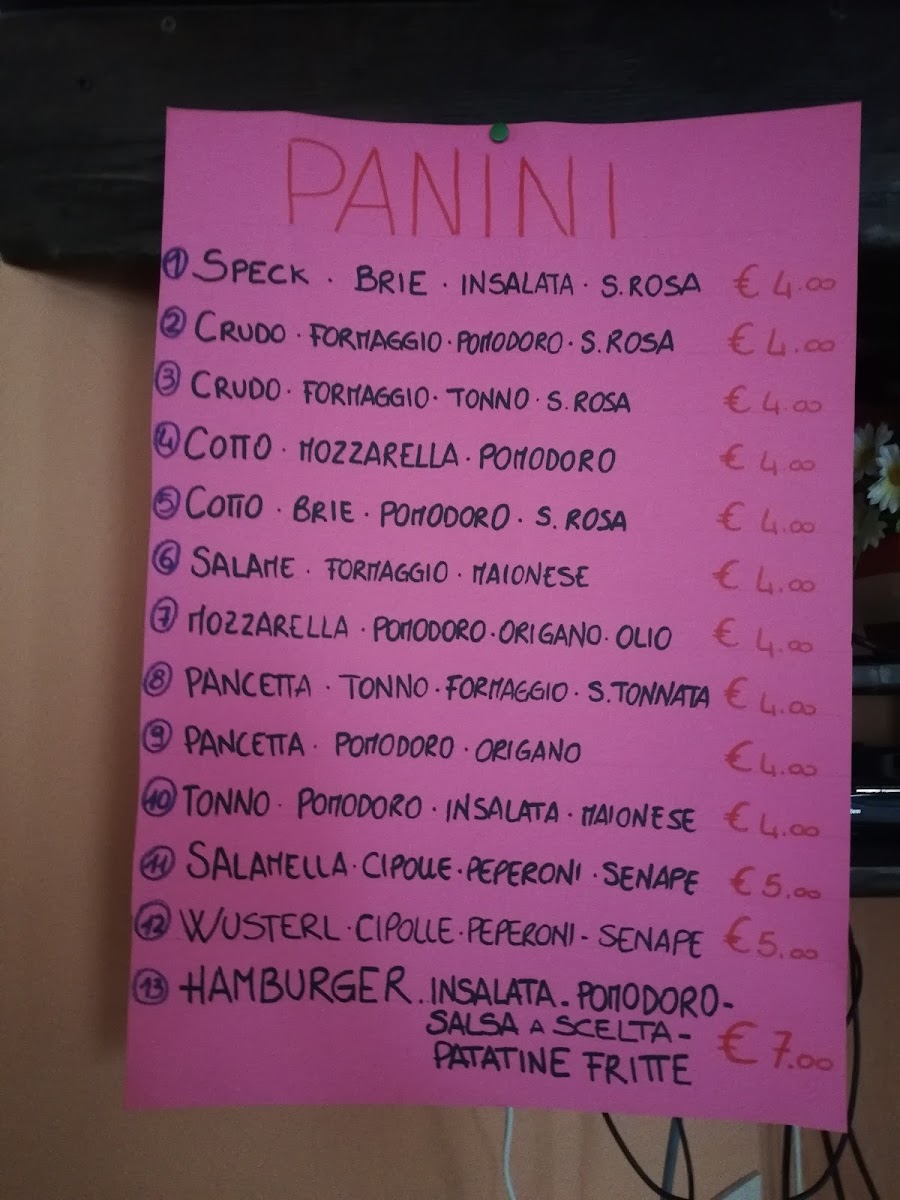 PANINI
1 SPECK · BRIE · INSALATA · S. ROSA € 4.00
2 CRUDO · FORMAGGIO · POMODORO · S. ROSA € 4.00
3 CRUDO · FORMAGGIO · TONNO · S. ROSA € 4.00
4 COTTO · MOZZARELLA · POMODORO € 4.00
5 COTTO · BRIE · POMODORO · S. ROSA € 4.00
6 SALAME · FORMAGGIO · MAIONESE € 4.00
7 MOZZARELLA · POMODORO · ORIGANO · OLIO € 4.00
8 PANCETTA · TONNO · FORMAGGIO · S. TONNATA € 4.00
9 PANCETTA · POMODORO · ORIGANO € 4.00
10 TONNO · POMODORO · INSALATA · MAIONESE € 4.00
11 SALAMELLA · CIPOLLE · PEPERONI · SENAPE € 5.00
12 WUSTERL · CIPOLLE · PEPERONI - SENAPE € 5.00
13 HAMBURGER . INSALATA - POMODORO -
SALSA A SCELTA -
PATATINE FRITTE € 7.00